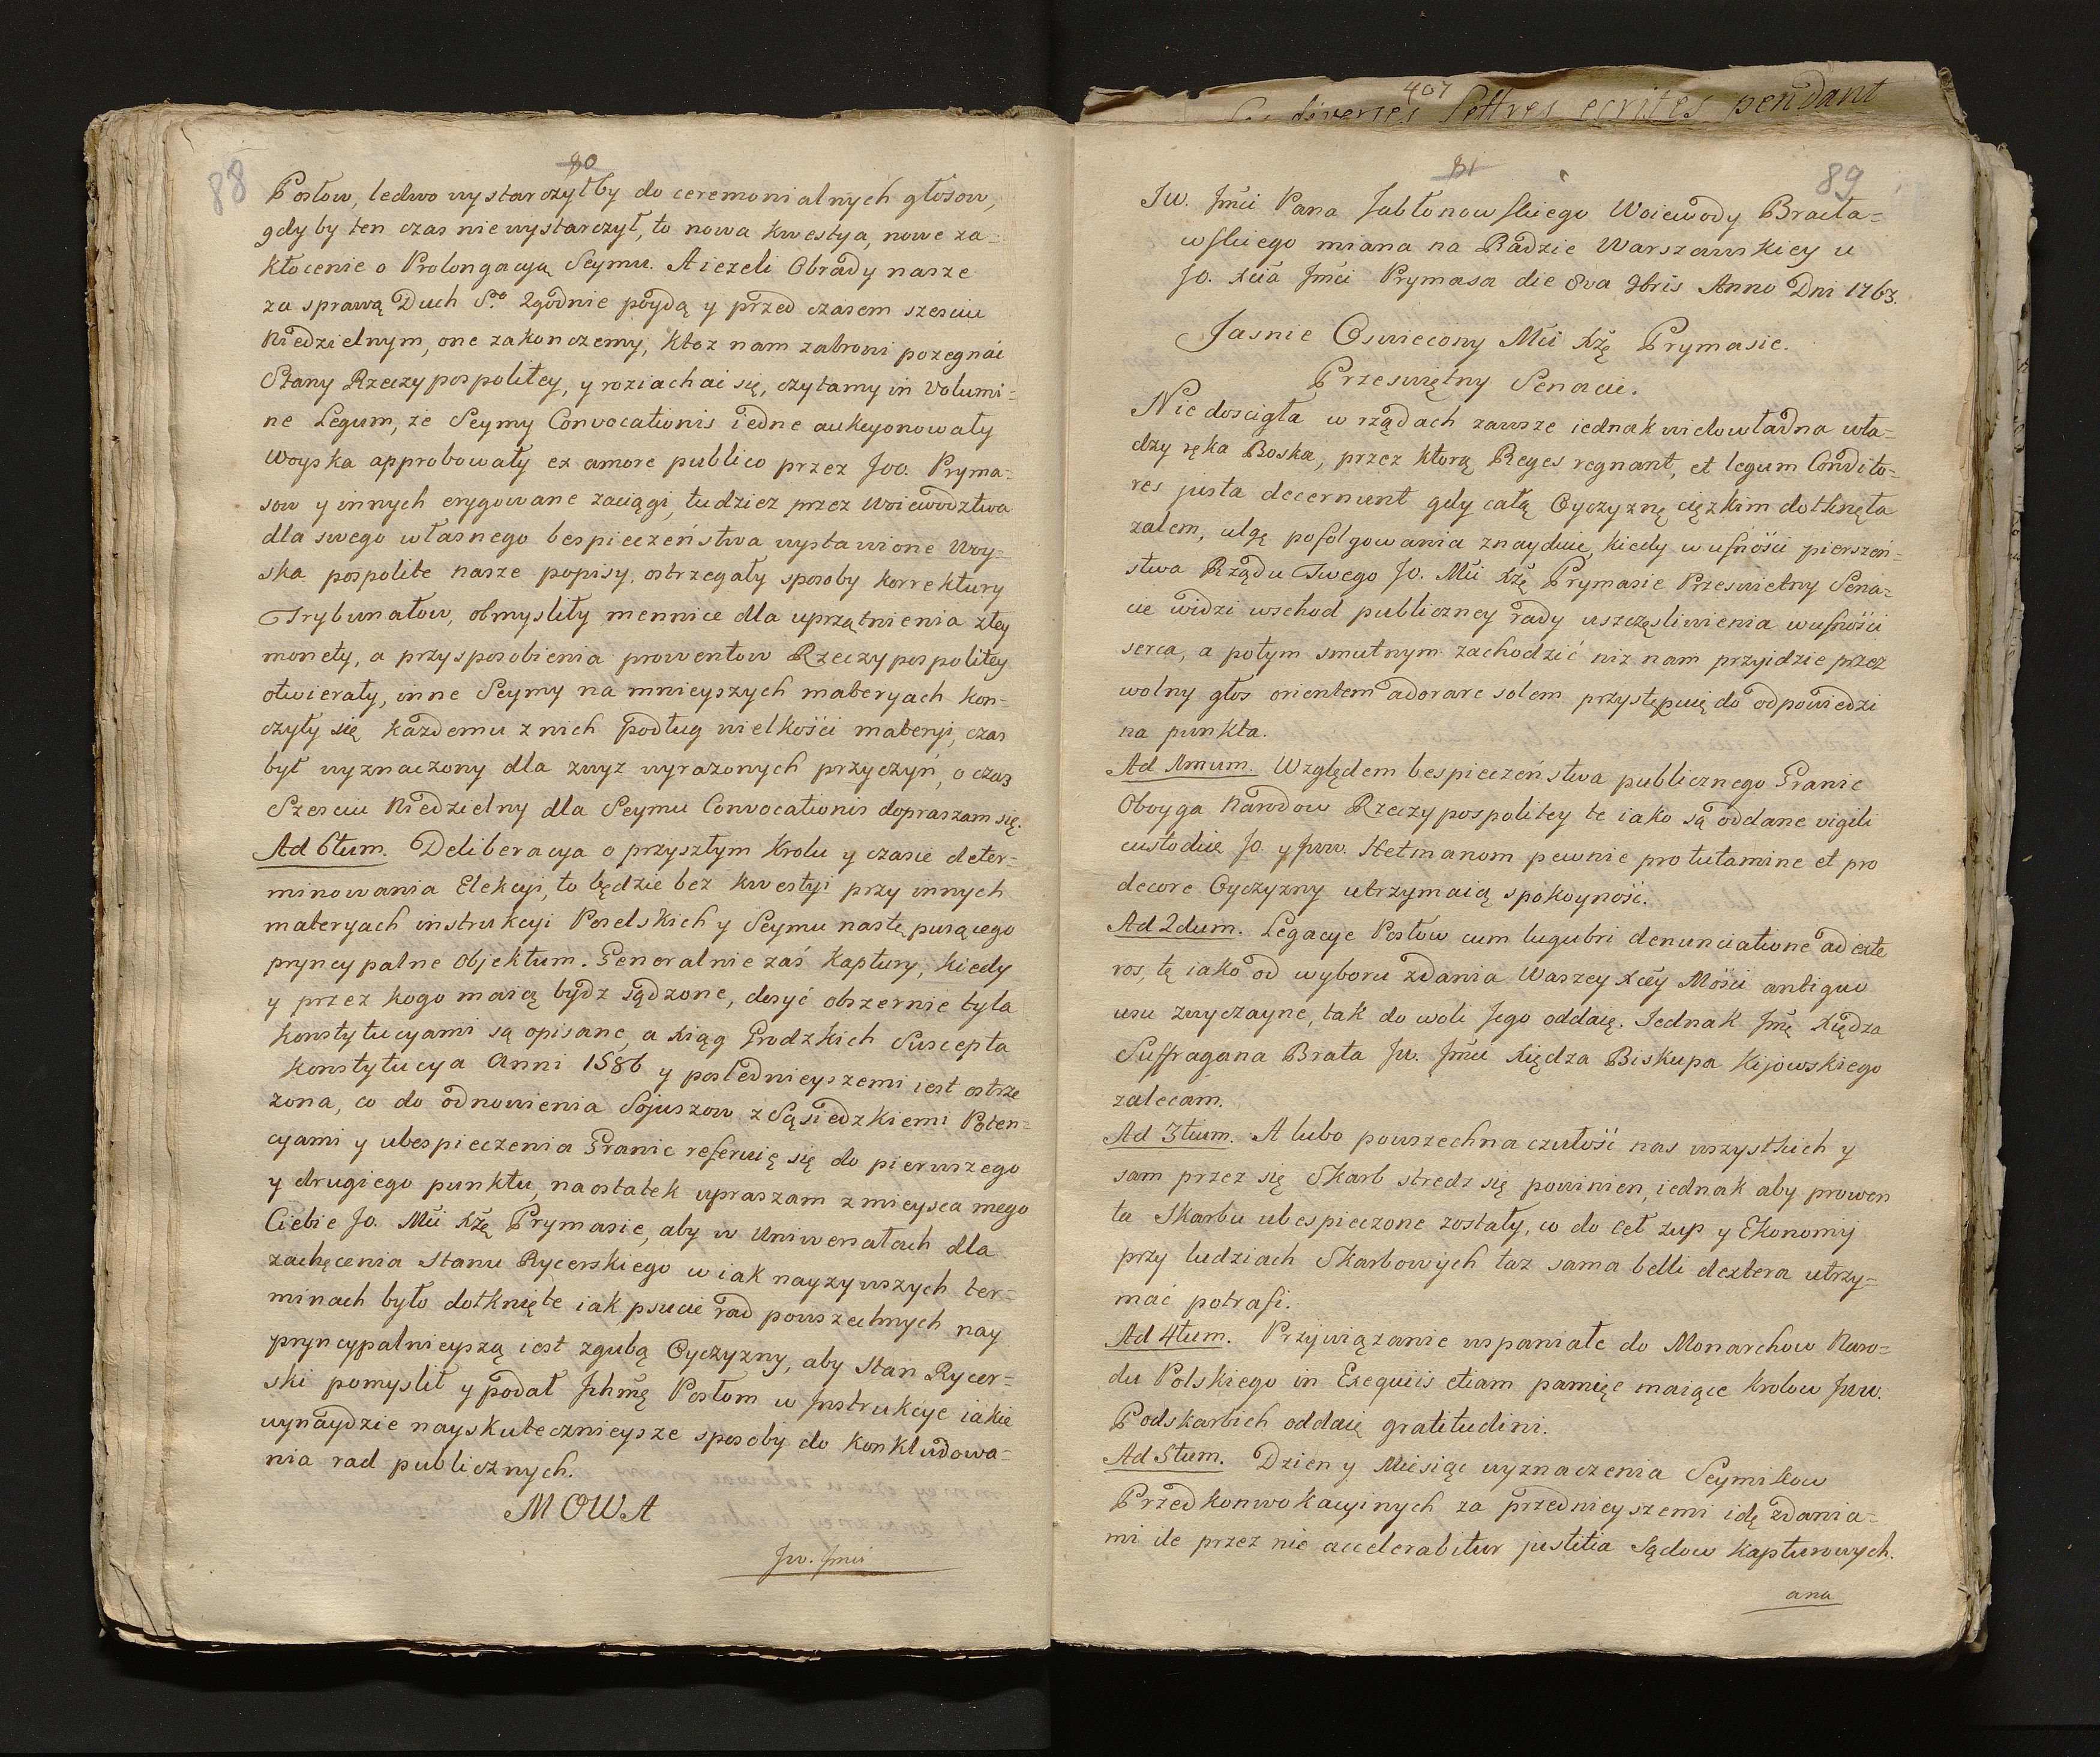 80
88
Posłow, ledwo wystarczyłby do ceremonialnych głosow,
gdyby ten czas niewystarczył, to nowa kwestya, nowe za-
kłocenie o Prolongacyą Seymu. A iezeli Obrady nasze
za sprawą Duch S.o zgodnie poydą y przed czasem szesciu
Niedzielnym, one zakonczemy, ktoz nam zabroni pozegnać
Stany Rzeczypospolitey, y roziachać się, czytamy in Volumi-
ne Legum, ze Seymy Convocationis iedne aukcyonowały
Woyska approbowały ex amore publico przez Joo. Pryma-
sow y innych erygowane zaciągi, tudziez przez Woiewodztwa
dla swego własnego bespieczeństwa wystawione Woy-
ska pospolite nasze popisy, ostrzegały sposoby korrektury
Trybunałow, obmysliły mennice dla uprzątnienia złey
monety, a przysposobienia prowentow Rzeczypospolitey
otwierały, inne Seymy na mnieyszych materyach kon-
czyły się kazdemu z nich podług wielkości materyi, czas
był wyznaczony dla zwyz wyrazonych przyczyń, o czas
Szesciu Niedzielny dla Seymu Convocationis dopraszam się.
Ad 6tum. Deliberacya o przyszłym Krolu y czasie deter-
minowania Elekcyi, to będzie bez kwestyi przy innych
materyach instrukcyi Poselskich y Seymu następuiącego
pryncypalne Objektum. Generalnie zaś Kaptury, kiedy
y przez kogo maią bydz sądzone, dosyć obszernie tyla
Konstytucyami są opisane, a xiąg Grodzkich Suscepta
Konstytucya Anni 1586 y poslednieyszemi iest ostrze
zona, co do odnowienia Sojuszow z Sąsiedzkiemi Poten-
cyami y ubespieczenia Granic referuię się do pierwszego
y drugiego punktu, na ostatek upraszam z mieysca mego
Ciebie Jo. Mći Xżę Prymasie, aby w Uniwersałach dla
zachęcenia Stanu Rycerskiego w iak nayzywszych ter-
minach było dotknięte iak psucie rad powszechnych nay
pryncypalnieyszą iest zgubą Oyczyzny, aby Stan Rycer-
ski pomyslił y podał Ichmę Posłom w Instrukcye iakie
wynaydzie nayskutecznieysze sposoby do konkludowa-
nia rad publicznych.
MOWA
Jw. Jmći
407
diverses lettres ecrites pendant
81
89
Jw. Jmći Pana Jabłonowskiego Woiewody Bracła-
wskiego miana na Radzie Warszawskiey u
Jo. Xcia Jmći Prymasa die 8va 9bris Anno Dni 1763.
Jasnie Oswiecony Mći Xżę Prymasie.
Przeswiętny Senacie.
Niedoscigła w rządach zawsze iednak wielowładna wła-
dzy ręka Boska, przez ktorą Reges regnant, et legum Condito-
res justa decernunt gdy całą Oyczyznę cięzkim dotknęła
zalem, ulgę pofolgowania znayduie, kiedy w ufności pierszeń-
stwa Rządu Twego Jo. Mći Xżę Prymasie Przeswietny Sena-
cie widzi wschod publiczney rady uszczęsliwienia w ufności
serca, a potym smutnym zachodzić niz nam przyidzie przez
wolny głos orientem adorare solem przystępuię do odpowiedzi
na punkta.
Ad 1mum. Względem bespieczeństwa publicznego Granic
Oboyga Narodow Rzeczypospolitey te iako są oddane vigili
custodiæ Jo. y Jww. Hetmanom pewnie pro tutamine et pro
decore Oyczyzny utrzymaią spokoyność.
Ad 2dum. Legacye Posłow cum lugubri denunciatione ad exte
ros, tę iako od wyboru zdania Waszey Xcey Mości antiquo
usu zwyczayne, tak do woli Jego oddaię. Iednak Jmę Xiędza
Suffragana Brata Jw. Jmći Xiędza Biskupa Kijowskiego
zalecam.
Ad 3tium. A lubo powszechna czułość nas wszystkich y
sam przez się Skarb stredz się powinien, iednak aby prowen
ta Skarbu ubespieczone zostały, co do ceł zup y Ekonomij
przy ludziach Skarbowych taz sama belli dextera utrzy-
mać potrafi.
Ad 4tum. Przywiązanie wspaniałe do Monarchow Naro-
du Polskiego in Exequiis etiam pamięć maiące krolow Jww.
Podskarbich oddaię gratitudini.
Ad 5tum. Dzien y Miesiąc wyznaczenia Seymikow
Przedkonwokacyinych za przednieyszemi idę zdania-
mi ile przez nie accelerabitur justitia Sądow Kapturowych.
ana